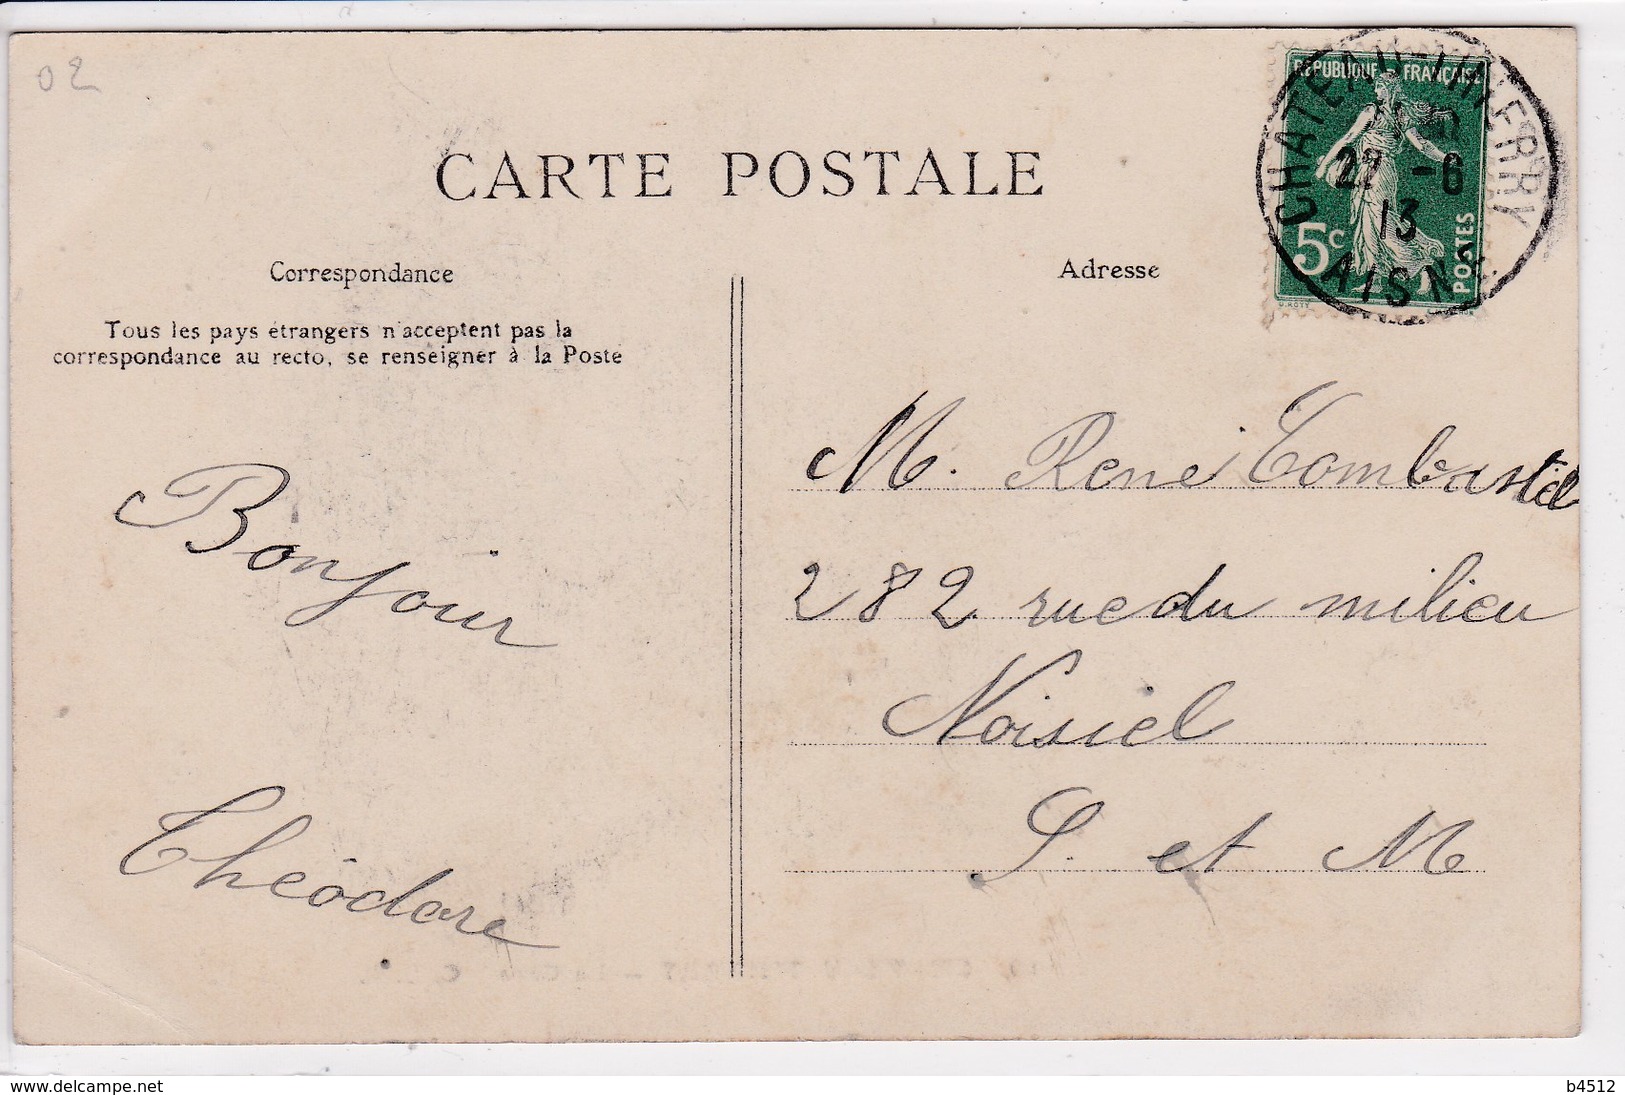 02
CARTE POSTALE
Correspondance
Adresse
Tous les pays étrangers n'acceptent pas la
correspondance au recto, se renseigner à la Poste
REPUBLIQUE - FRANÇAISE
5c
POSTES
CHATEAU-THIERRY
22 -6
13
AISNE
Bonjour
Théodore
M. René
282 rue du milieu
Noisiel
S. et M
www.delcampe.net
b4512